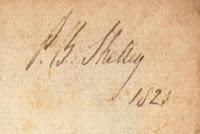 P. B. Shelley
1820